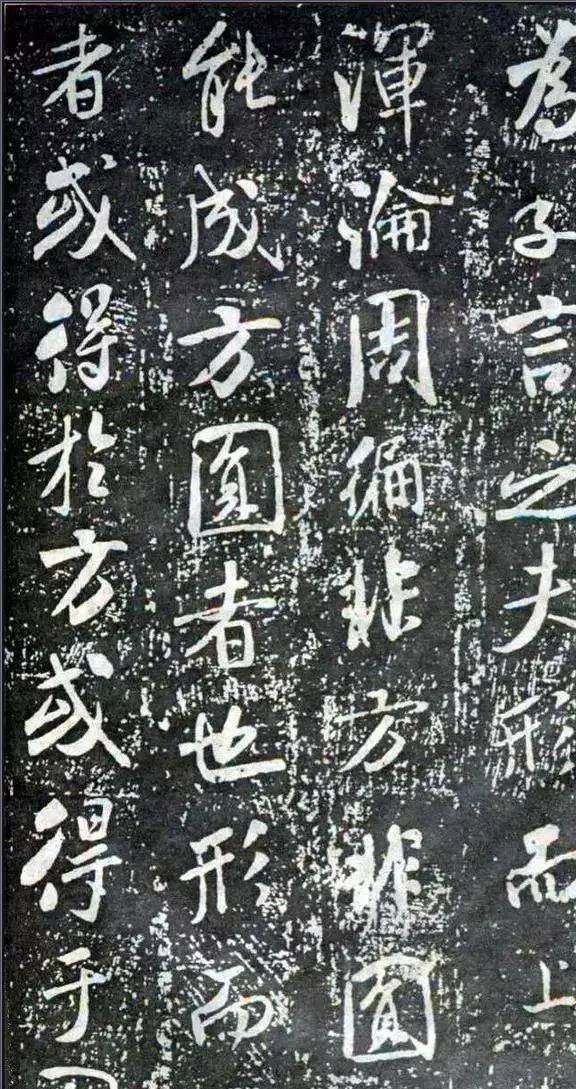 為子言之夫形而上
渾淪周徧非方非圓
能成方圓者也形而
者或得於方或得于